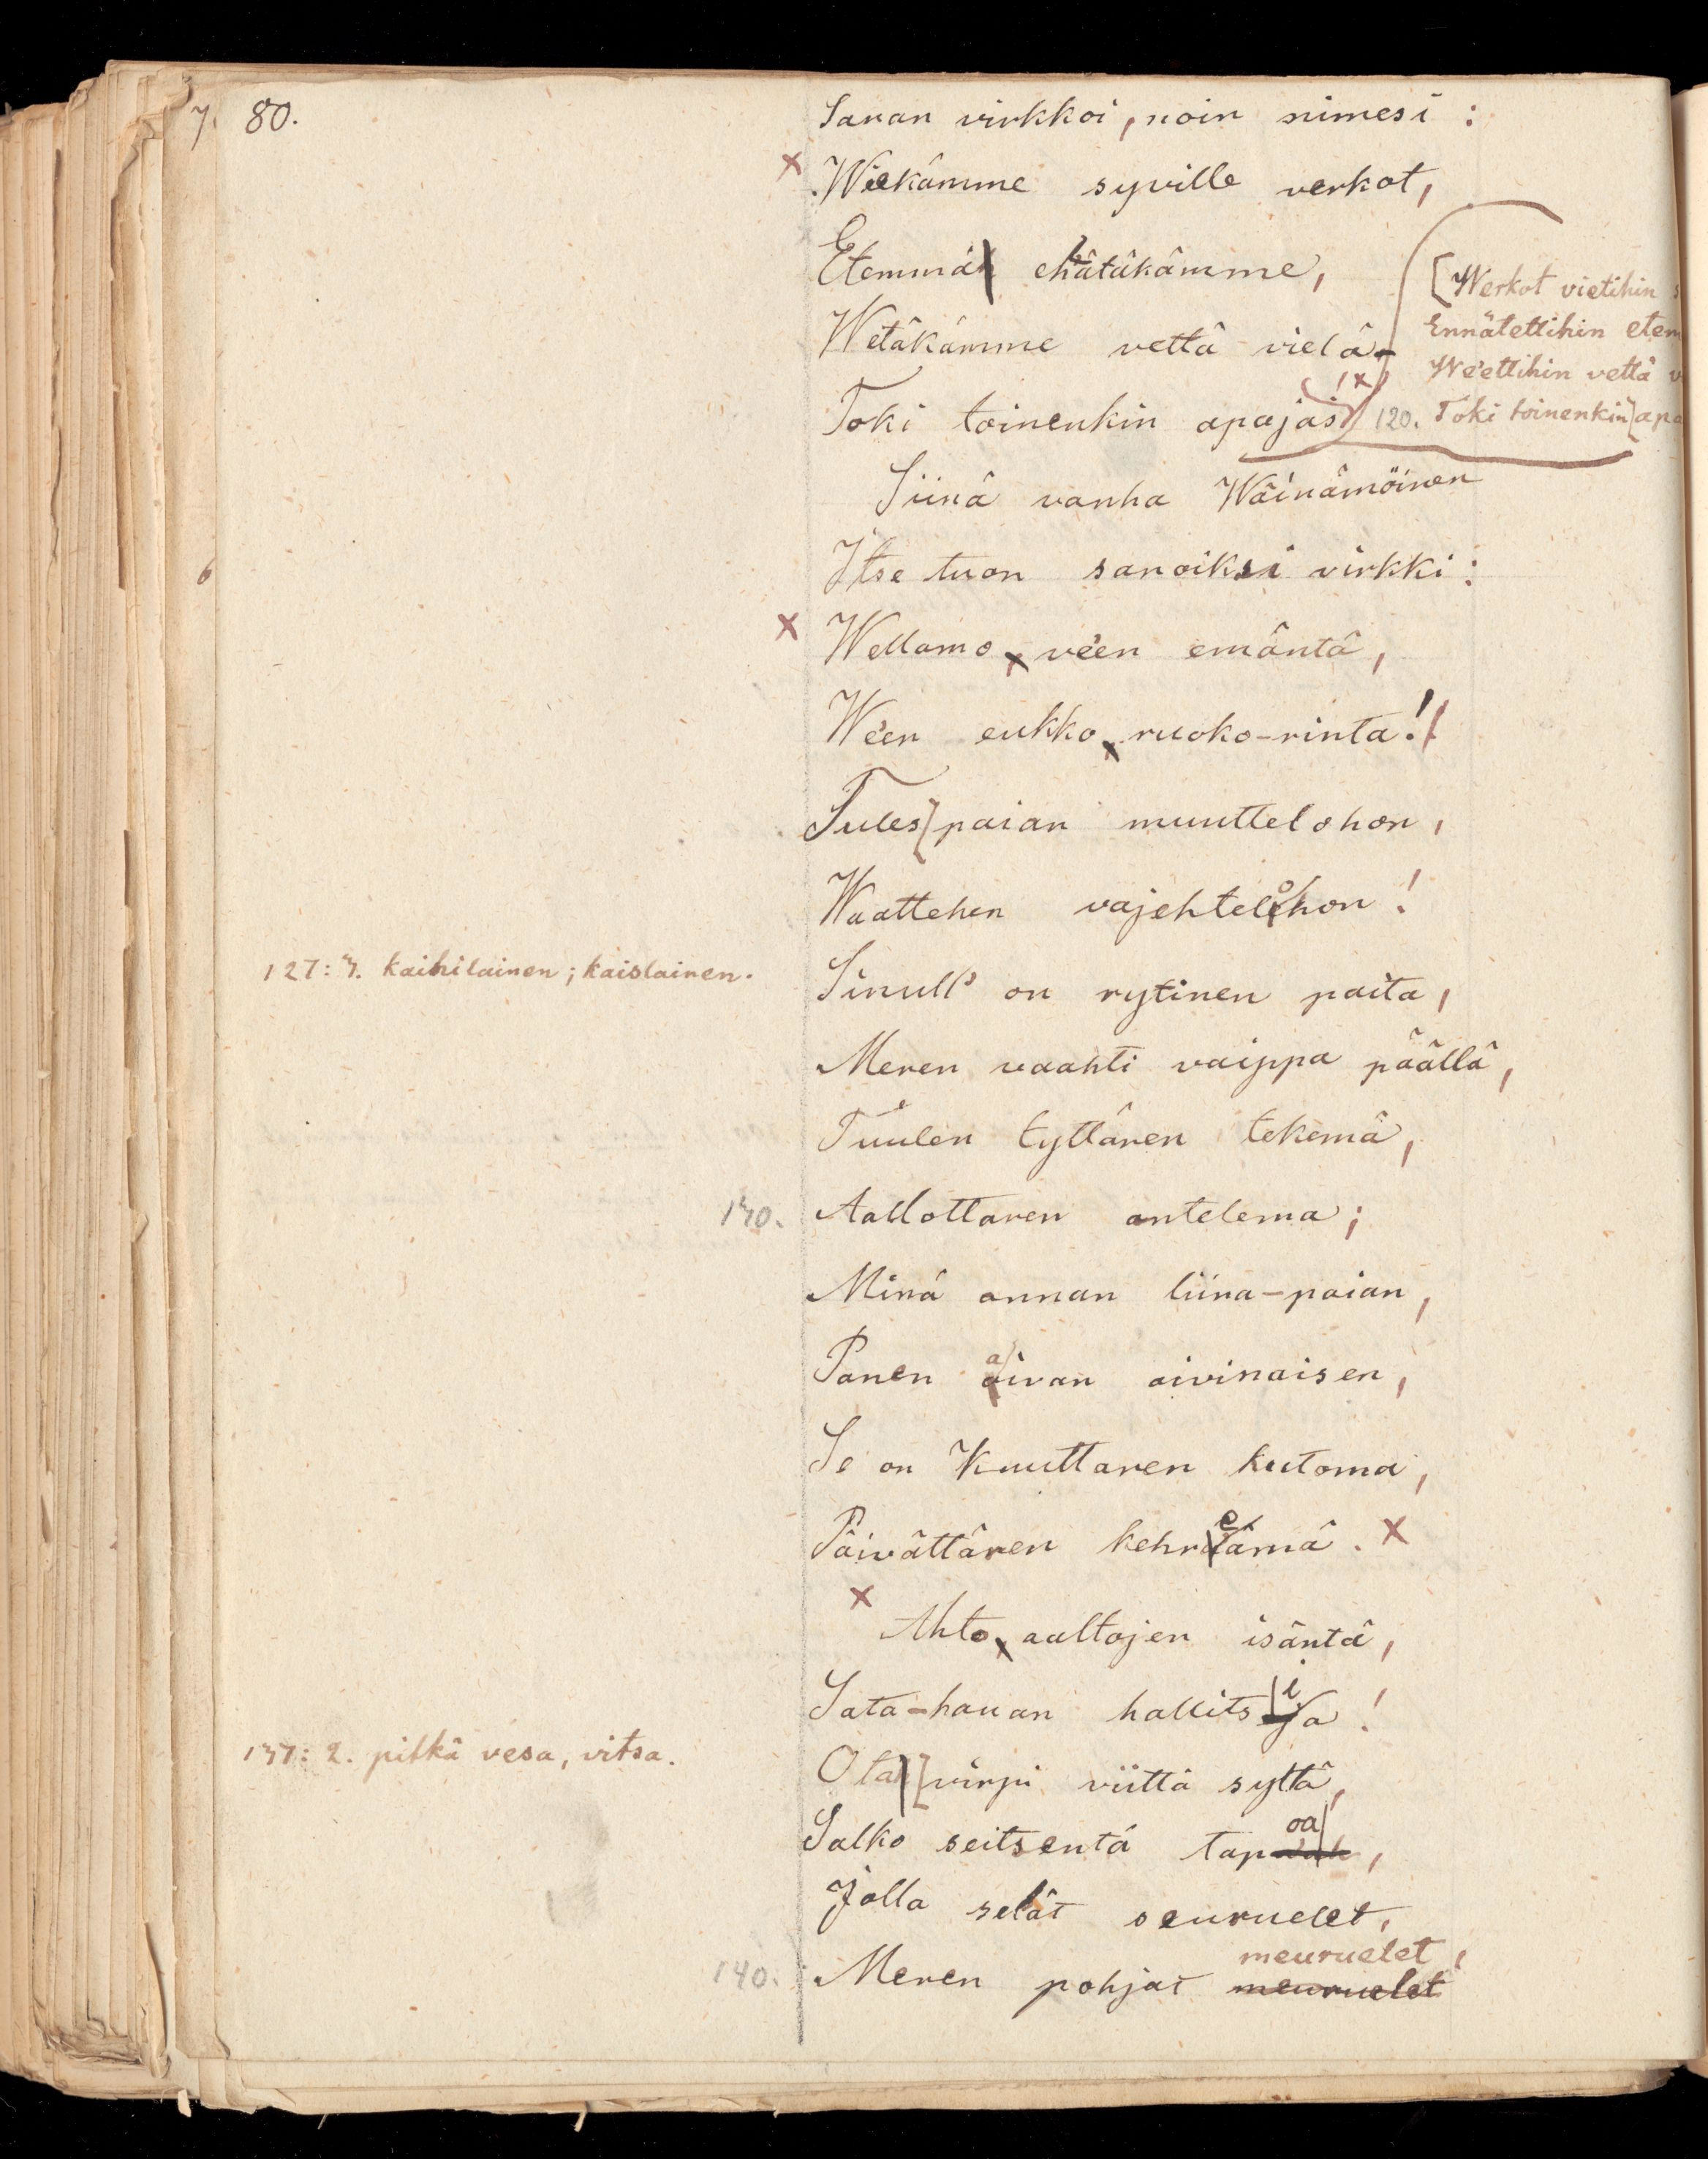 7. 80.
Sanan virkkoi, noin nimesi:
Wiekämme syville verkot,
Etemmä ehätäkämme,
[Werkot vietihin
Ennätettihin etem
Wetäkämme vettä vielä
We'ettihin vettä
Toki toinenkin apajas
120. Toki toinenkin] apa
Siinä vanha Wäinämöinen
Itse tuon sanoiksi virkki:
6
Wellamo, ve'en emäntä,
We'en eukko, ruoko-rinta!
Tules] paian muuttelohon,
Waattehen vajehtelohon!
127: 3. kaihilainen; kaislainen.
Sinull' on rytinen paita,
Meren vaahti vaippa päällä,
Tuulen tyttären tekemä,
130. Aallottaren antelema;
Minä annan liina-paian,
Panen aivan aivinaisen,
Se on Kuuttaren kutoma,
Päivättären kehreämä.
Ahto, aaltojen isäntä,
Sata-hauan hallitsija!
137: 2. pitkä vesa, vitsa.
Ota] virpi viittä syltä,
Salko seitsentä tapoa,
Jolla selät seuruelet,
meuruelet,
140. Meren pohjat meuruelet